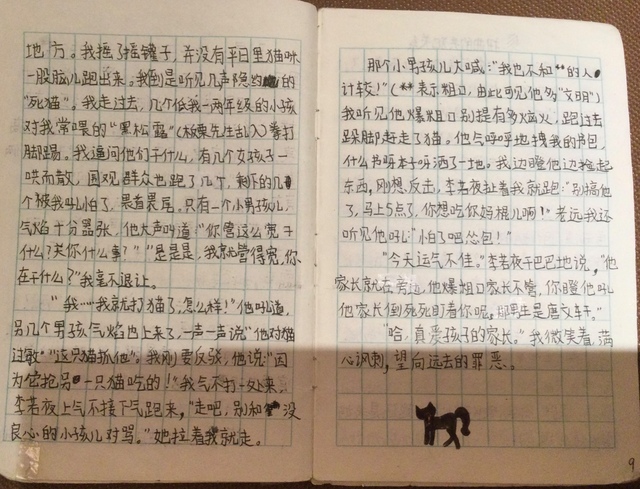 地方。我摇了摇罐子，并没有平日里猫咪
一股脑儿跑出来。我倒是听见几声隐约的
“死猫”。我走过去，几个低我一两年级的小孩
对我常喂的“黑松露”（板栗先生乱入）拳打
脚踢。我逼问他们干什么，有几个女孩子一
哄而散，围观群众也跑了几个，剩下的几
个被我吼怕了，畏首畏尾。只有一个小男孩儿，
气焰十分嚣张，他大声叫道：“你管这么宽干
什么？关你什么事？”“是是是，我就管得宽，你
在干什么？”我毫不退让。
“我……我就打猫了，怎么样！”他吼道，
另几个男孩气焰也上来了，一声一声说“他对猫
过敏”“这只猫抓他”。我刚要反驳，他说：“因
为它把另一只猫吃的！”我气不打一处来，
李若夜上气不接下气跑来，“走吧，别和没
良心的小孩儿对骂。”她拉着我就走。
那个小男孩儿大喊：“我也不和**的人
计较！”（**表示粗口，由此可见他多“文明”）
我听见他爆粗口别提有多恼火，跑过去
跺脚赶走了猫。他气呼呼地拽我的书包，
什么书呀本子呀洒了一地。我边瞪他边捡起
东西，刚想反击，李若夜扯着我就跑：“别搞他
了，马上5点了，你想吃你妈棍儿啊！”老远我还
听见他吼：“小白了吧怂包！”
“今天运气不佳。”李若夜干巴巴地说，“他
家长就在旁边，他爆粗口家长不管，你瞪他吼
他家长倒死死盯着你呢，那男生是唐文轩。”
“哈，真爱孩子的家长。”我微笑着，满
心讽刺，望向远去的罪恶。
9